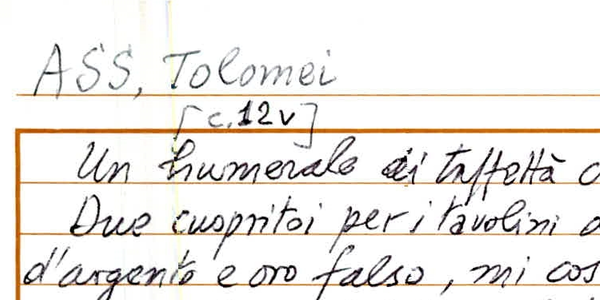 ASS, Tolomei
[c.12v]
Un humerale di taffettà
Due cuopritoi per i tavolini
d'argento e oro falso, mi